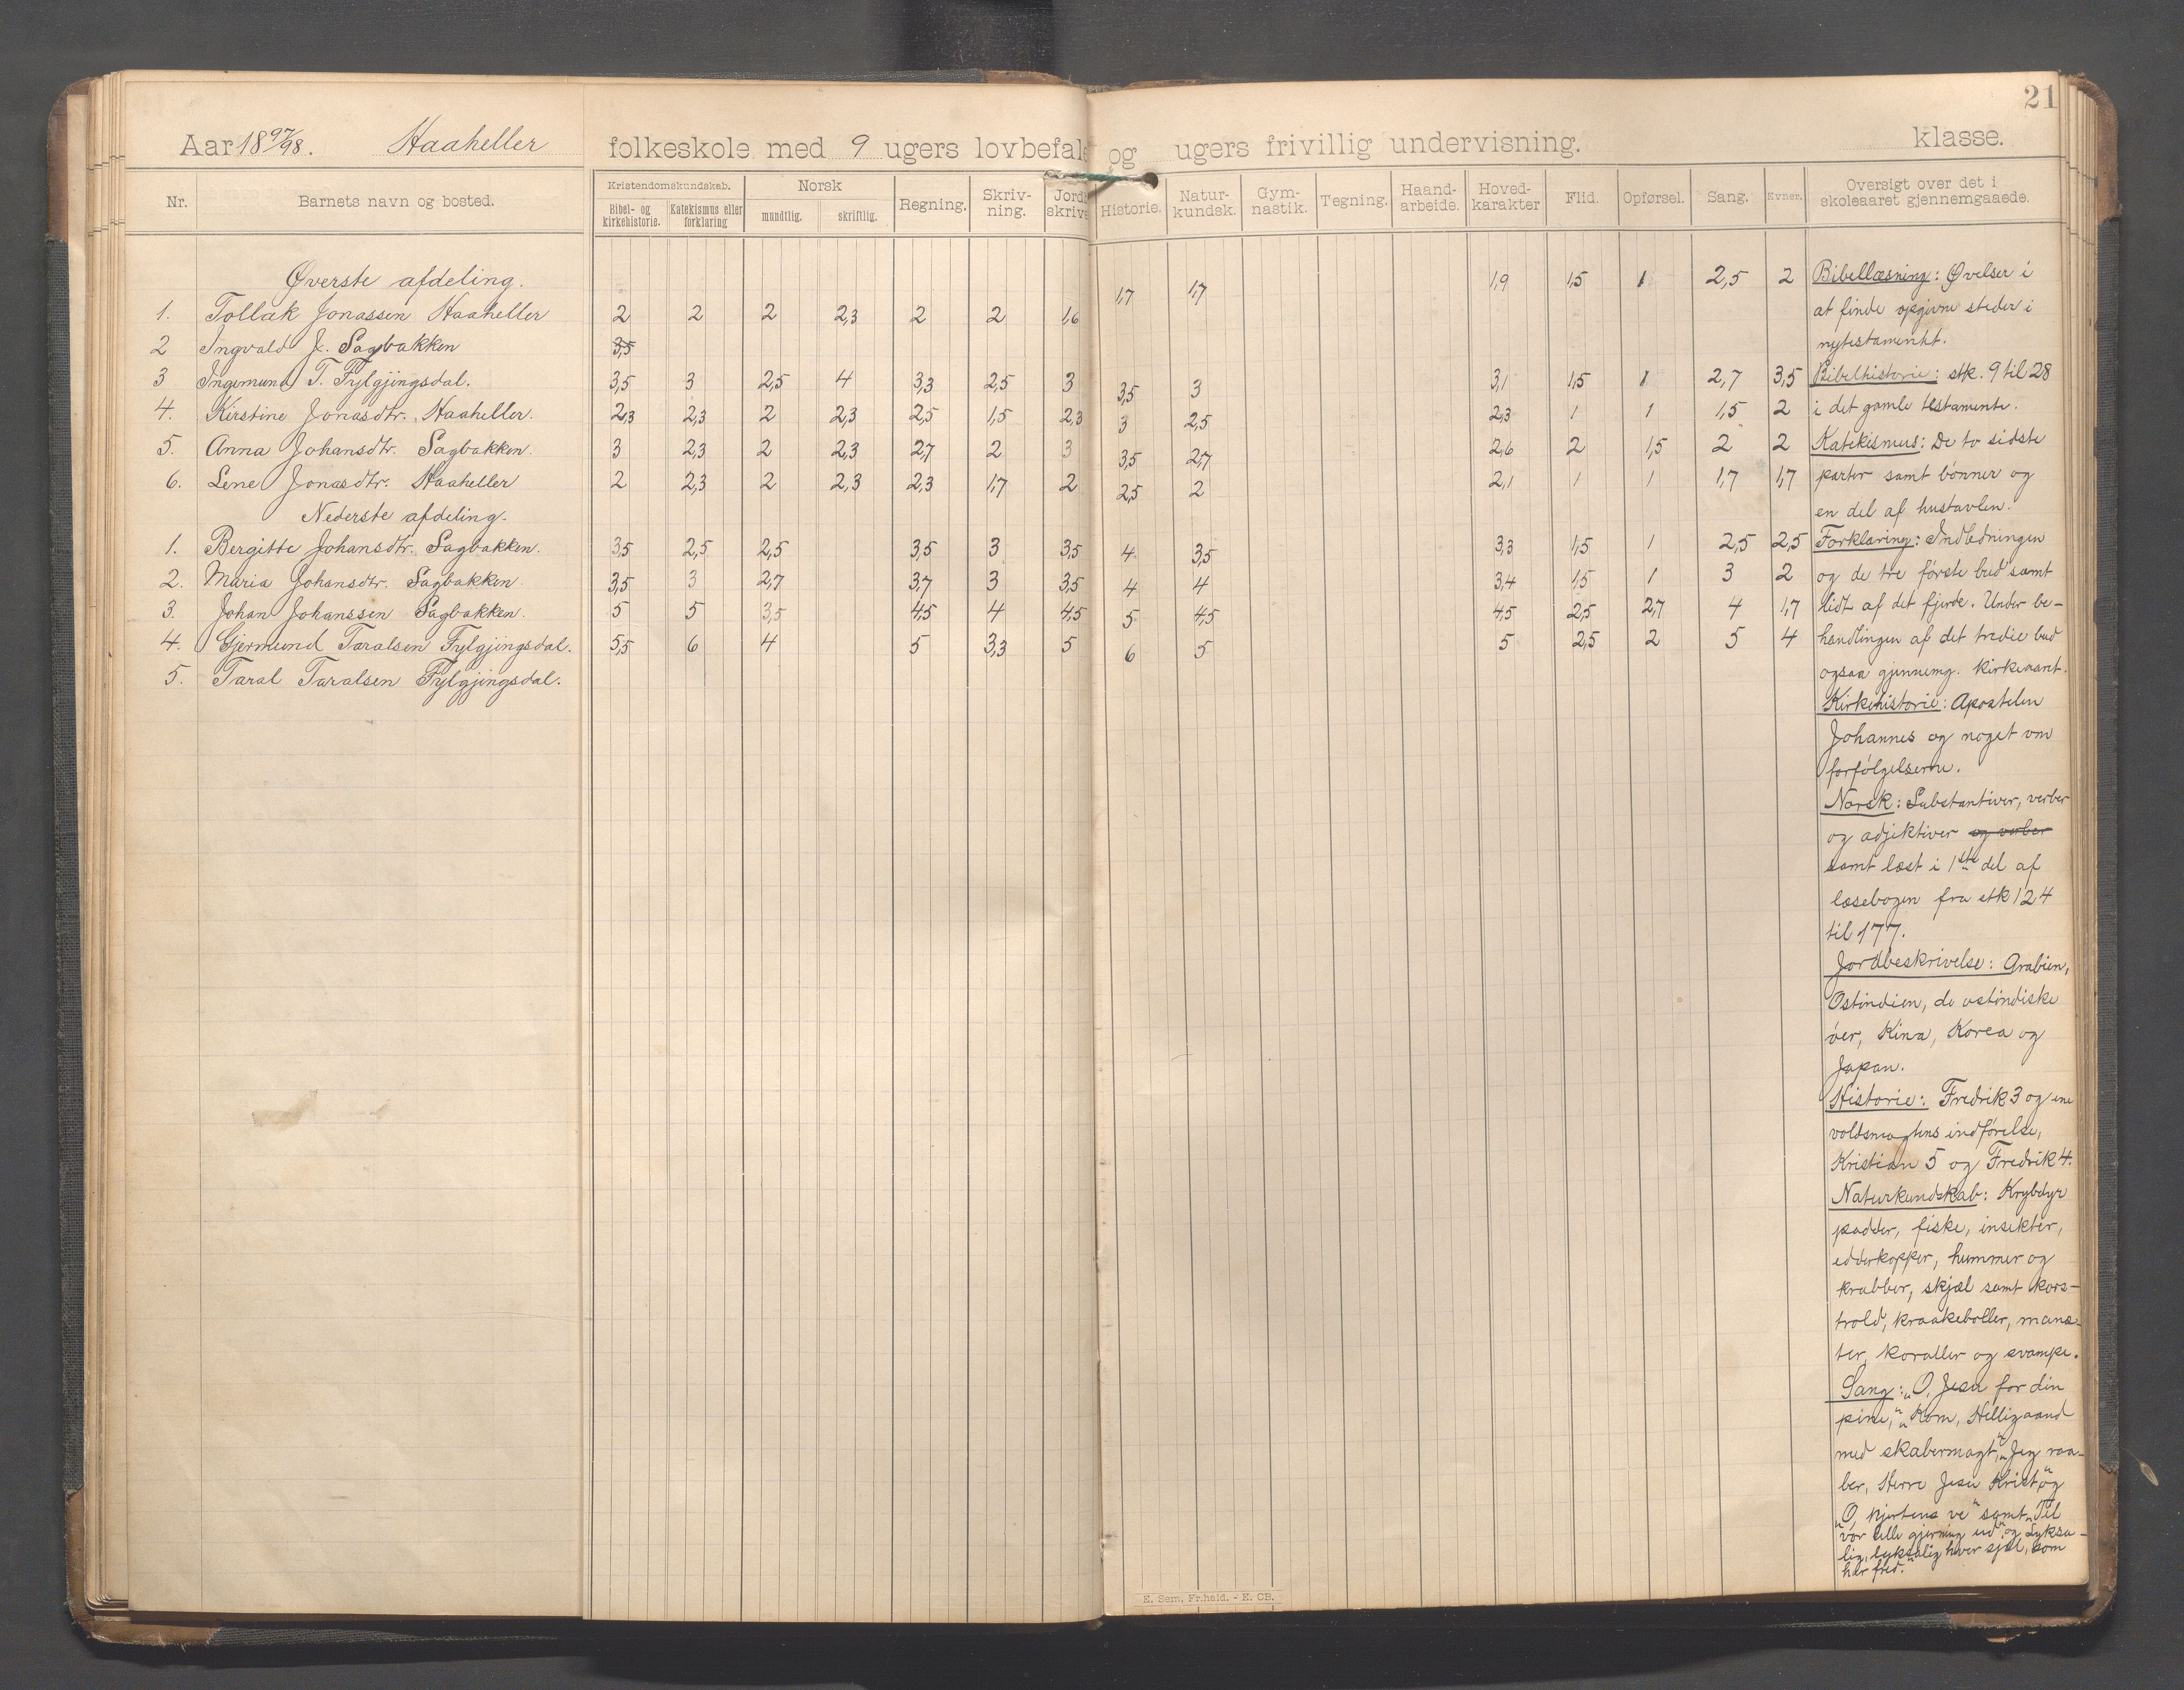 21
Aar 1897/98. Haaheller folkeskole med 9 ugers lovbefale og ugers frivillig undervisning. klasse.
Nr. Barnets navn og bosted. Kristendomskundskab. Bibel- og kirkehistorie. Katekismus eller forklaring Norsk mundtlig. skriftlig. Regning. Skriv-ning. Jord skrive Historie. Natur-kundsk. Gym-nastik. Tegning. Haand-arbeide. Hoved-karakter Flid. Opførsel. Sang. Evner. Oversigt over det i skoleaaret gjennemgaaede.
Øverste afdeling.
1. Tollak Jonassen Haaheller 2 2 2 2,3 2 2 1,6 1,7 1,7 1,9 1,5 1 2,5 2
2 Ingvald J. Sagbakken 3,5
3 Ingemund T. Fylgjingsdal. 3,5 3 2,5 4 3,3 2,5 3 3,5 3 3,1 1,5 1 2,7 3,5
4. Kirstine Jonasdtr. Haaheller. 2,3 2,3 2 2,3 2,5 1,5 2,3 3 2,5 2,3 1 1 1,5 2
5. Anna Johansdtr. Sagbakken. 3 2,3 2 2,3 2,7 2 3 3,5 2,7 2,6 2 1,5 2 2
6. Lene Jonasdtr. Haaheller 2 2,3 2 2,3 2,3 1,7 2 2,5 2 2,1 1 1 1,7 1,7
Nederste afdeling.
1. Bergitte Johansdtr. Sagbakken. 3,5 2,5 2,5 3,5 3 3,5 4 3,5 3,3 1,5 1 2,5 2,5
2. Maria Johansdtr. Sagbakken. 3,5 3 2,7 3,7 3 3,5 4 4 3,4 1,5 1 3 2
3. Johan Johanssen Sagbakken. 5 5 3,5 4,5 4 4,5 5 4,5 4,5 2,5 2,7 4 1,7
4. Gjermund Taralsen Fylgjingsdal. 5,5 6 4 5 3,3 5 6 5 5 2,5 2 5 4
5. Taral Taralsen Fylgjingsdal.
Bibellæsning: Øvelser i
at finde opgivne steder i
nytestamentet.
Bibelhistorie: stk. 9 til 28
i det gamle testamente.
Katekismus: De to sidste
parter samt bønner og
en del af hustavlen.
Forklaring: Indledningen
og de tre første bud samt
lidt af det fjerde. Under be-
handlingen af det tredie bud
ogsaa gjennemg. kirkeaaret.
Kirkehistorie: Apostelen
Johannes og noget om
forfølgelserne.
Norsk: Substantiver, verber
og adjektiver og verber
samt læst i 1ste del af
læsebogen fra stk 124
til 177.
Jordbeskrivelse: Arabien,
Ostindien, de ostindiske
øer, Kina, Korea og
Japan.
Historie: Fredrik 3 og ene
voldsmagtens indførelse,
Kristian 5 og Fredrik 4.
Naturkundskab: Krybdyr
padder, fiske, insekter,
edderkopper, hummer og
krabber, skjæl samt kors-
trold, kraakeboller, manæ-
ter, koraller og svampe.
Sang: „O, Jesu for din
pine," „Kom, Helligaand
med skabermagt," „Jeg raa-
ber, Herre Jesu Krist" og
„O, hjertens ve" samt „Til
vor lille gjerning ud" og „Lyksa-
lig, lyksalig hver sjæl, som
har fred."
E. Sem, Fr.hald. - E. CB.